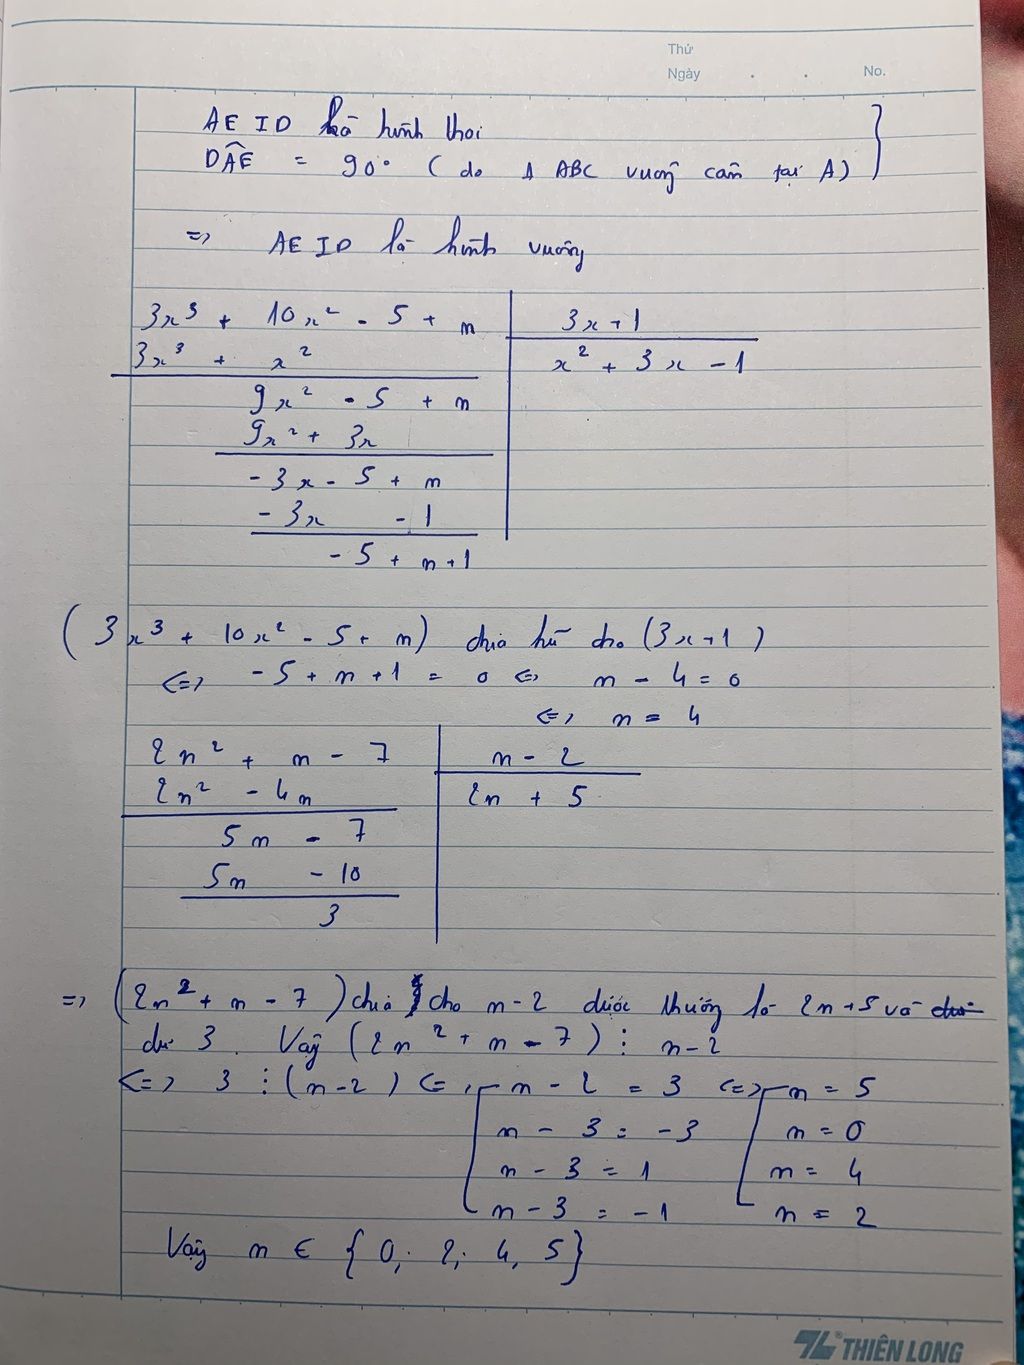 Thứ
Ngày . . No.
AE ID là hình thoi
DÂE = 90° ( do Δ ABC vuông cân tại A) }
=> AE ID là hình vuông
3x³ + 10x² - 5 + m | 3x+1
3x³ + x² | x² + 3x - 1
9x² - 5 + m
9x² + 3x
- 3x - 5 + m
- 3x - 1
- 5 + m+1
( 3x³ + 10x² - 5 + m) chia hết cho (3x+1)
<=> -5 + m +1 = 0 <=> m - 4 = 0
<=> m = 4
2n² + n - 7 | n - 2
2n² - 4n | 2n + 5
5n - 7
5n - 10
3
=> (2n² + n - 7) chia cho n-2 được thương là 2n+5 và
dư 3. Vậy (2n² + n - 7) ⋮ n-2
<=> 3 ⋮ (n-2) <=> [ n - 2 = 3 <=> [ n = 5
n - 3 = -3 n = 0
n - 3 = 1 n = 4
n - 3 = -1 n = 2
Vậy n ∈ { 0; 2; 4, 5}
THIÊN LONG